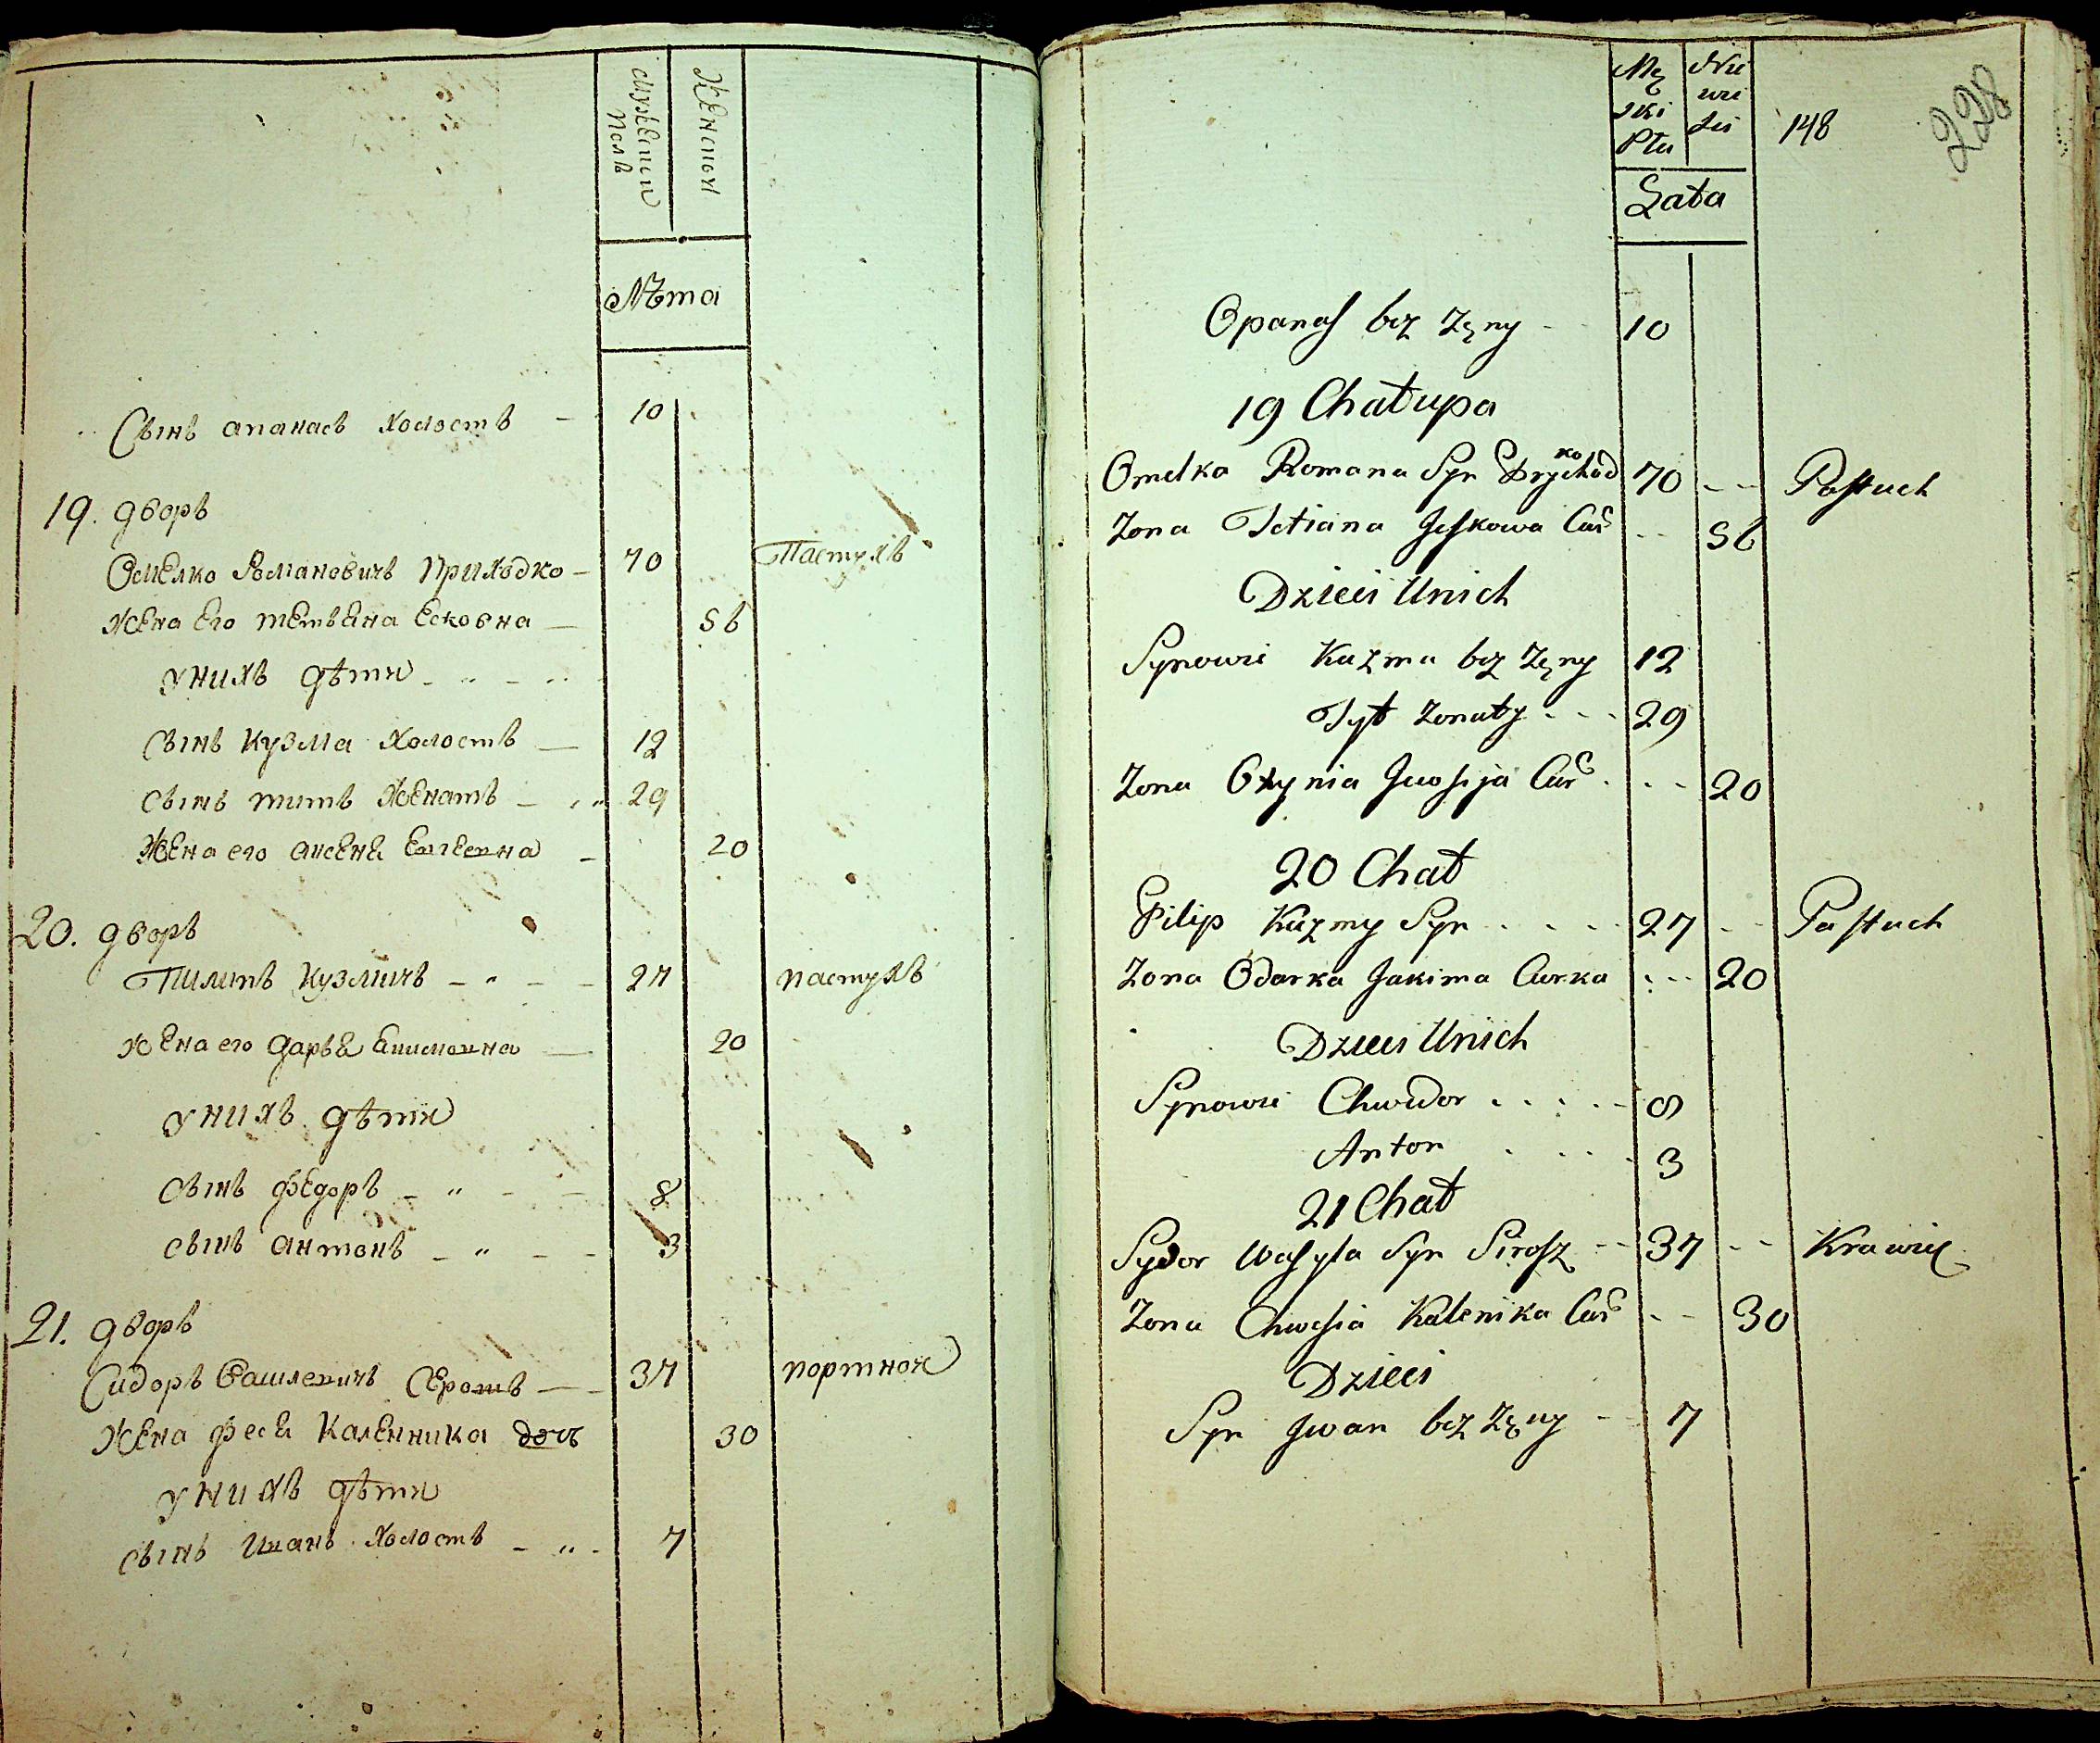 Мужески полъ
Женской
Лѣта
Сынъ апанасъ холостъ - 10
19. дворъ
Омелко Романовичъ Приходко - 70 Пастухъ
жена его тетьяна Есковна - 56
униχъ дѣти
сынъ кузма холостъ - 12
сынъ титъ женатъ - 29
жена его 20
20. дворъ
Пилипъ кузмичъ - 27 пастухъ
жена его дарья 20
унихъ дѣти
сынъ федоръ - 8
сынъ антонъ - 3
21. дворъ
Сидоръ Василевичъ Серошъ - 37 портной
жена феся Каленника дочъ 30
унихъ дѣти
сынъ иванъ холостъ - 7
Mę
ski
Płci
Nie
wie
ści
148
228
Lata
Opanas bez żęny - 10
19 Chałupa
Omelko Romana Syn Prychodko 70 -- Pastuch
Zona Tetiana Jeskowa Cur -- 56
Dzieci Unich
Synowie Kuzma bez żęny 12
Tyt żonaty --- 29
Zona Cur --- 20
20 Chał
Pilip Kuzmy Syn .... 27 -- Pastuch
Zona Odarka Jakima Curka --- 20
Dzieci Unich
Synowie Chwedor ..... 8
Anton .... 3
21 Chał
Sydor Wasyla Syn Sirosz -- 37 -- Krawiec
Zona Chwesia Kalenika Cur -- 30
Dzieci
Syn Jwan bez żęny -- 7